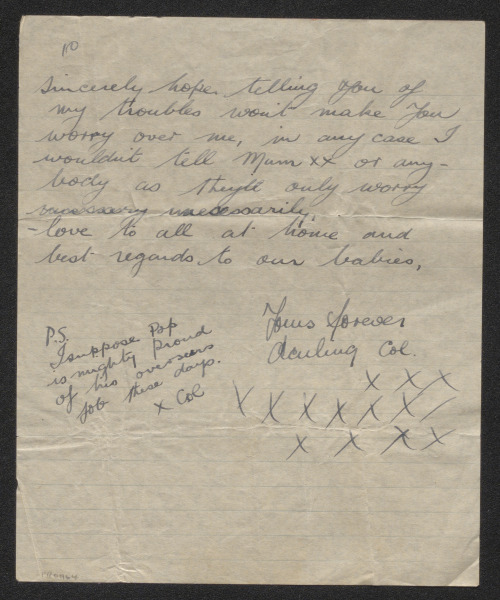 sincerely hope telling you of
my troubles won't make you
worry over me, in any case I
wouldn't tell Mum xx or any-
body as they'll only worry
unnecessarily.
-love to all at home and
best regards to our babies,
Yours forever
Col.
x x x
x x x x x x
x x x x
P.S.
I suppose Pop
is mighty proud
of his overseers
job these days.
x Col